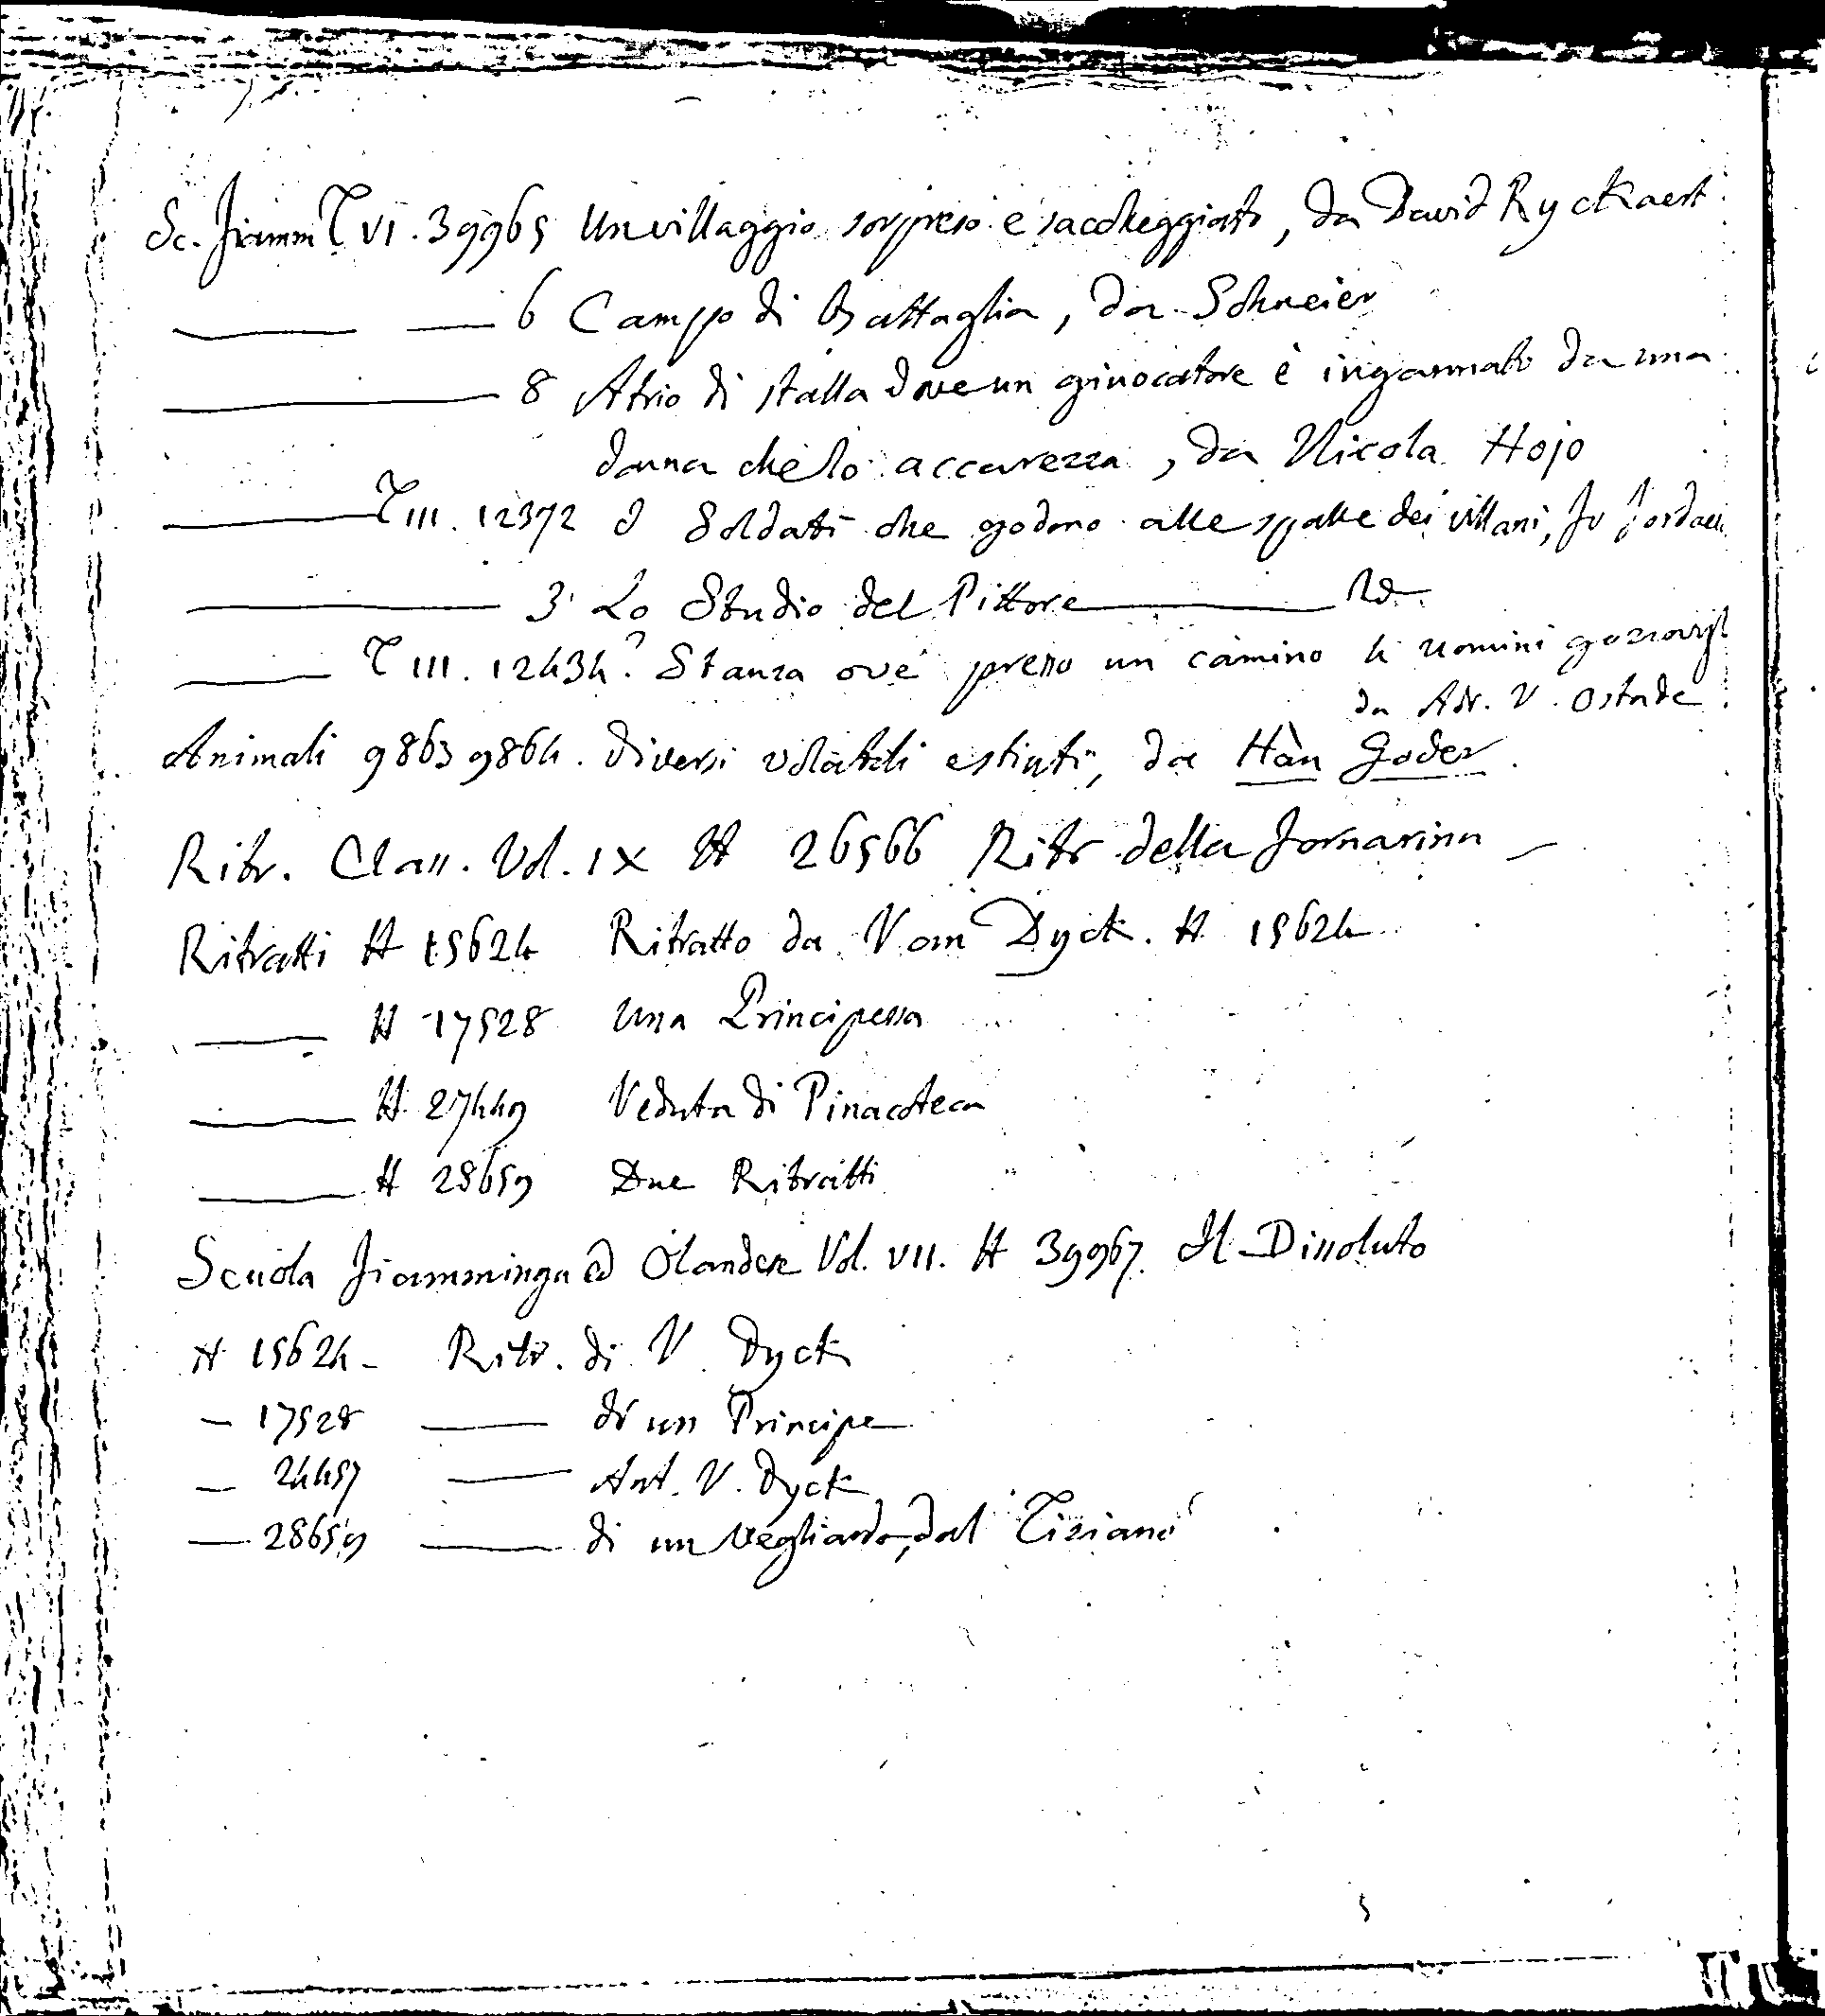 Sc. Fiamm T VI. 39965 Un villaggio sorpreso e saccheggiato, da David Ryckaert
— — 6 Campo di Battaglia, da Schneier
— 8 Atrio di stalla dove un giuocatore è ingannato da una
donna che lo accarezza, da Nicola Hojo
— T III. 12372 I Soldati che godono alle spalle dei villani, Fr
— 3 Lo Studio del Pittore — Id.
— T III. 12434? Stanza ove presso un camino 4 uomini
da Adr. V. Ostade
Animali 9863 9864. Diversi volatili estinti, da Hàn Goder.
Ritr. Class. Vol. IX N 26566 Ritr della Fornarina —
Ritratti N 15624 Ritratto da Van Dyck. N 15624
— N 17528 Una Principessa
— N 27449 Veduta di Pinacoteca
— N 28659 Due Ritratti
Scuola Fiamminga ed Olandese Vol. VII. N 39967. Il Dissoluto
N 15624 - Ritr. di V. Dyck
— 17528 — di un Principe
— 24457 — Ant. V. Dyck
— 28659 — di un vegliardo, dal Tiziano